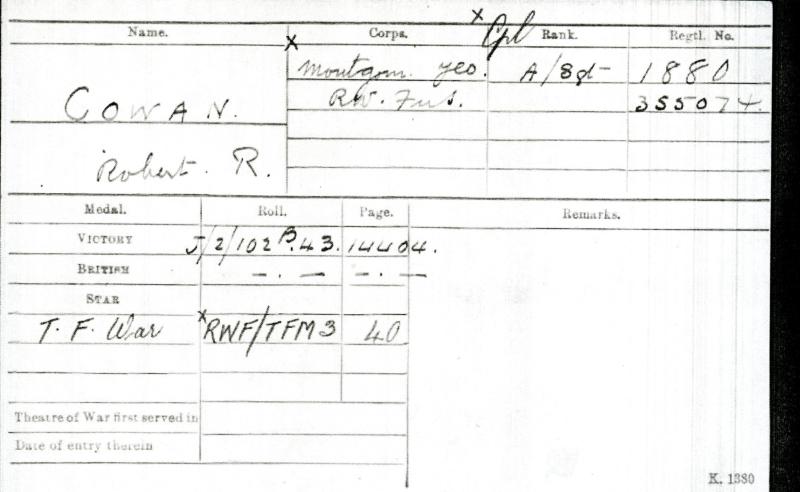 x Cpl
Name. Corps. Rank. Regtl. No.
x Montgom. Yeo. A/Sgt 1880
COWAN. R.W. Fus. 355074.
Robert. R.
Medal. Roll. Page. Remarks.
VICTORY J/2/102 B.43. 14404.
BRITISH -. — -. —
STAR
T. F. War xRWF/TFM3 40
Theatre of War first served in
Date of entry therein
K. 1380